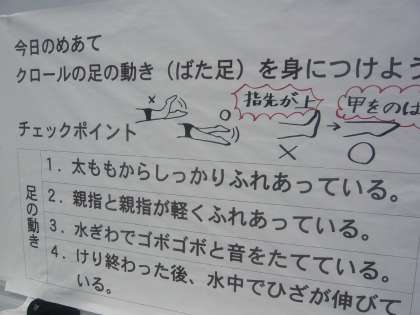 今日のめあて
クロールの足の動き（ばた足）を身につけよう
指先が上
甲をのば
チェックポイント
足の動き
1．太ももからしっかりふれあっている。
2．親指と親指が軽くふれあっている。
3．水ぎわでゴボゴボと音をたてている。
4．けり終わった後、水中でひざが伸びて
いる。